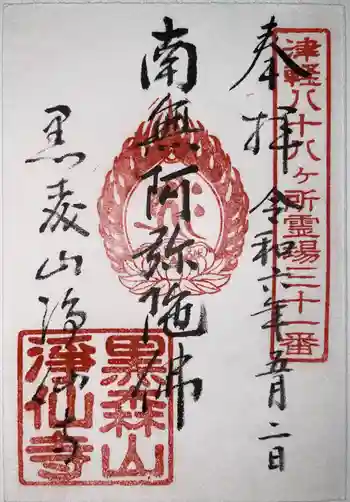 奉拝
令和六年五月二日
津軽八十八ヶ所霊場三十一番
南無阿弥陀佛
黒森山浄仙寺
黒森山
浄仙寺